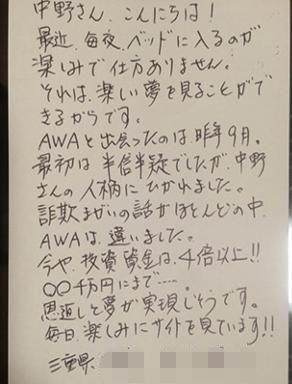 中野さん、こんにちは!
最近、毎夜、ベッドに入るのが
楽しみで仕方ありません。
それは、楽しい夢を見ることがで
きるからです。
AWAと出会ったのは、昨年9月。
最初は半信半疑でしたが、中野
さんの人柄にひかれました。
詐欺まがいの話がほとんどの中、
AWAは、違いました。
今や、投資資金は、4倍以上!!
〇〇千万円にまで……。
恩返しと夢が実現しそうです。
毎日、楽しみにサイトを見ています!!
三重県